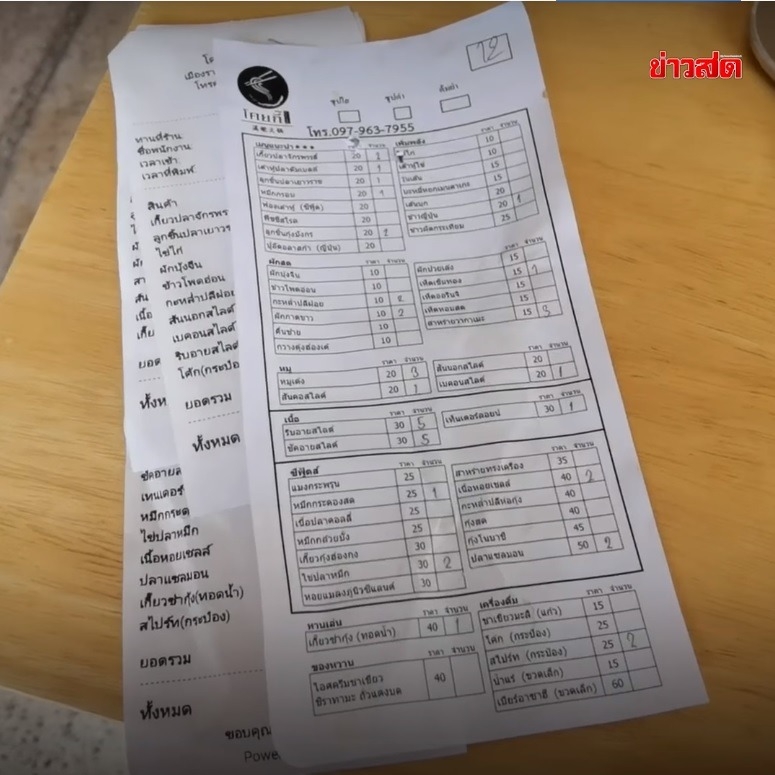 ข่าวสด
72
โคยกี่
โทร.097-963-7955
ซุปใส
ซุปดำ
ต้มยำ
เมนูแนะนำ ★★★
จำนวน
เกี๊ยวปลาจักรพรรดิ์ 20
เต้าหู้ปลาดัมเบลล์ 20 1
ลูกชิ้นปลาเยาวราช 20 1
หมึกกรอบ 20 1
ฟองเต้าหู้ (ซีฟู้ด) 20
ฟิชชีสโรล 20
ลูกชิ้นกุ้งมังกร 20
ปูอัดอลาสก้า (ญี่ปุ่น) 20
เพิ่มพลัง ราคา จำนวน
ไข่ไก่ 10
เต้าหู้ไข่ 10
วุ้นเส้น 15
บะหมี่หยกเมนตาเกะ 15
เส้นบุก 20
ข่าวญี่ปุ่น 20 1
ข้าวผัดกระเทียม 25
ผักสด ราคา จำนวน
ผักบุ้งจีน 10
ข้าวโพดอ่อน 10
กะหล่ำปลีฝอย 10
ผักกาดขาว 10 2
คื่นช่าย 10
กวางตุ้งฮ่องเต้ 10
ผักปวยเล้ง 15
เห็ดเข็มทอง 15
เห็ดออรินจิ 15
เห็ดหอมสด 15
สาหร่ายวากาเมะ 15 3
หมู ราคา จำนวน
หมูเด้ง 20 3
สันคอสไลด์ 20 1
ราคา จำนวน
สันนอกสไลด์ 20
เบคอนสไลด์ 20 1
เนื้อ ราคา จำนวน
ริบอายสไลด์ 30 5
ชัคอายสไลด์ 30 5
ราคา จำนวน
เท็นเดอร์ลอยน์ 30 1
ซีฟู้ดส์ ราคา จำนวน
แมงกะพรุน 25
หมึกกระดองสด 25 1
เนื้อปลาดอลลี่ 25
หมึกกล้วยบั้ง 25
เกี๊ยวกุ้งฮ่องกง 30
ไข่ปลาหมึก 30 2
หอยแมลงภู่นิวซีแลนด์ 30
ราคา จำนวน
สาหร่ายทรงเครื่อง 35
เนื้อหอยเชลล์ 40 2
กะหล่ำปลีห่อกุ้ง 40
กุ้งสด 40
กุ้งโนบาชิ 45
ปลาแซลมอน 50 2
ทานเล่น ราคา จำนวน
เกี๊ยวซ่ากุ้ง (ทอดน้ำ) 40 1
ของหวาน ราคา จำนวน
ไอศครีมชาเขียว 40
ชิราทามะ ถั่วแดงบด
เครื่องดื่ม ราคา จำนวน
ชาเขียวมะลิ (แก้ว) 15
โค้ก (กระป๋อง) 25
สไปร์ท (กระป๋อง) 25 2
น้ำแร่ (ขวดเล็ก) 15
เบียร์อาซาฮี (ขวดเล็ก) 60
เมืองรา
ทานที่ร้าน
ชื่อพนักงาน
เวลาเข้า
เวลาที่พิมพ์
สินค้า
เกี๊ยวปลาจักรพร
ลูกชิ้นปลาเยาวร
ไข่ไก่
ผักบุ้งจีน
ข้าวโพดอ่อน
กะหล่ำปลีฝอย
สันนอกสไลด์
เบคอนสไลด์
ริบอายสไลด์
โค้ก(กระป๋อง
ยอดรวม
ทั้งหมด
ยอดร
ทั้งห
ชัคอายส
เทนเดอร์
หมึกกระด
ไข่ปลาหมึก
เนื้อหอยเชลล์
ปลาแซลมอน
เกี๊ยวซ่ากุ้ง(ทอดน้ำ)
สไปร์ท(กระป๋อง)
ยอดรวม
ทั้งหมด
ขอบคุณ
Powe